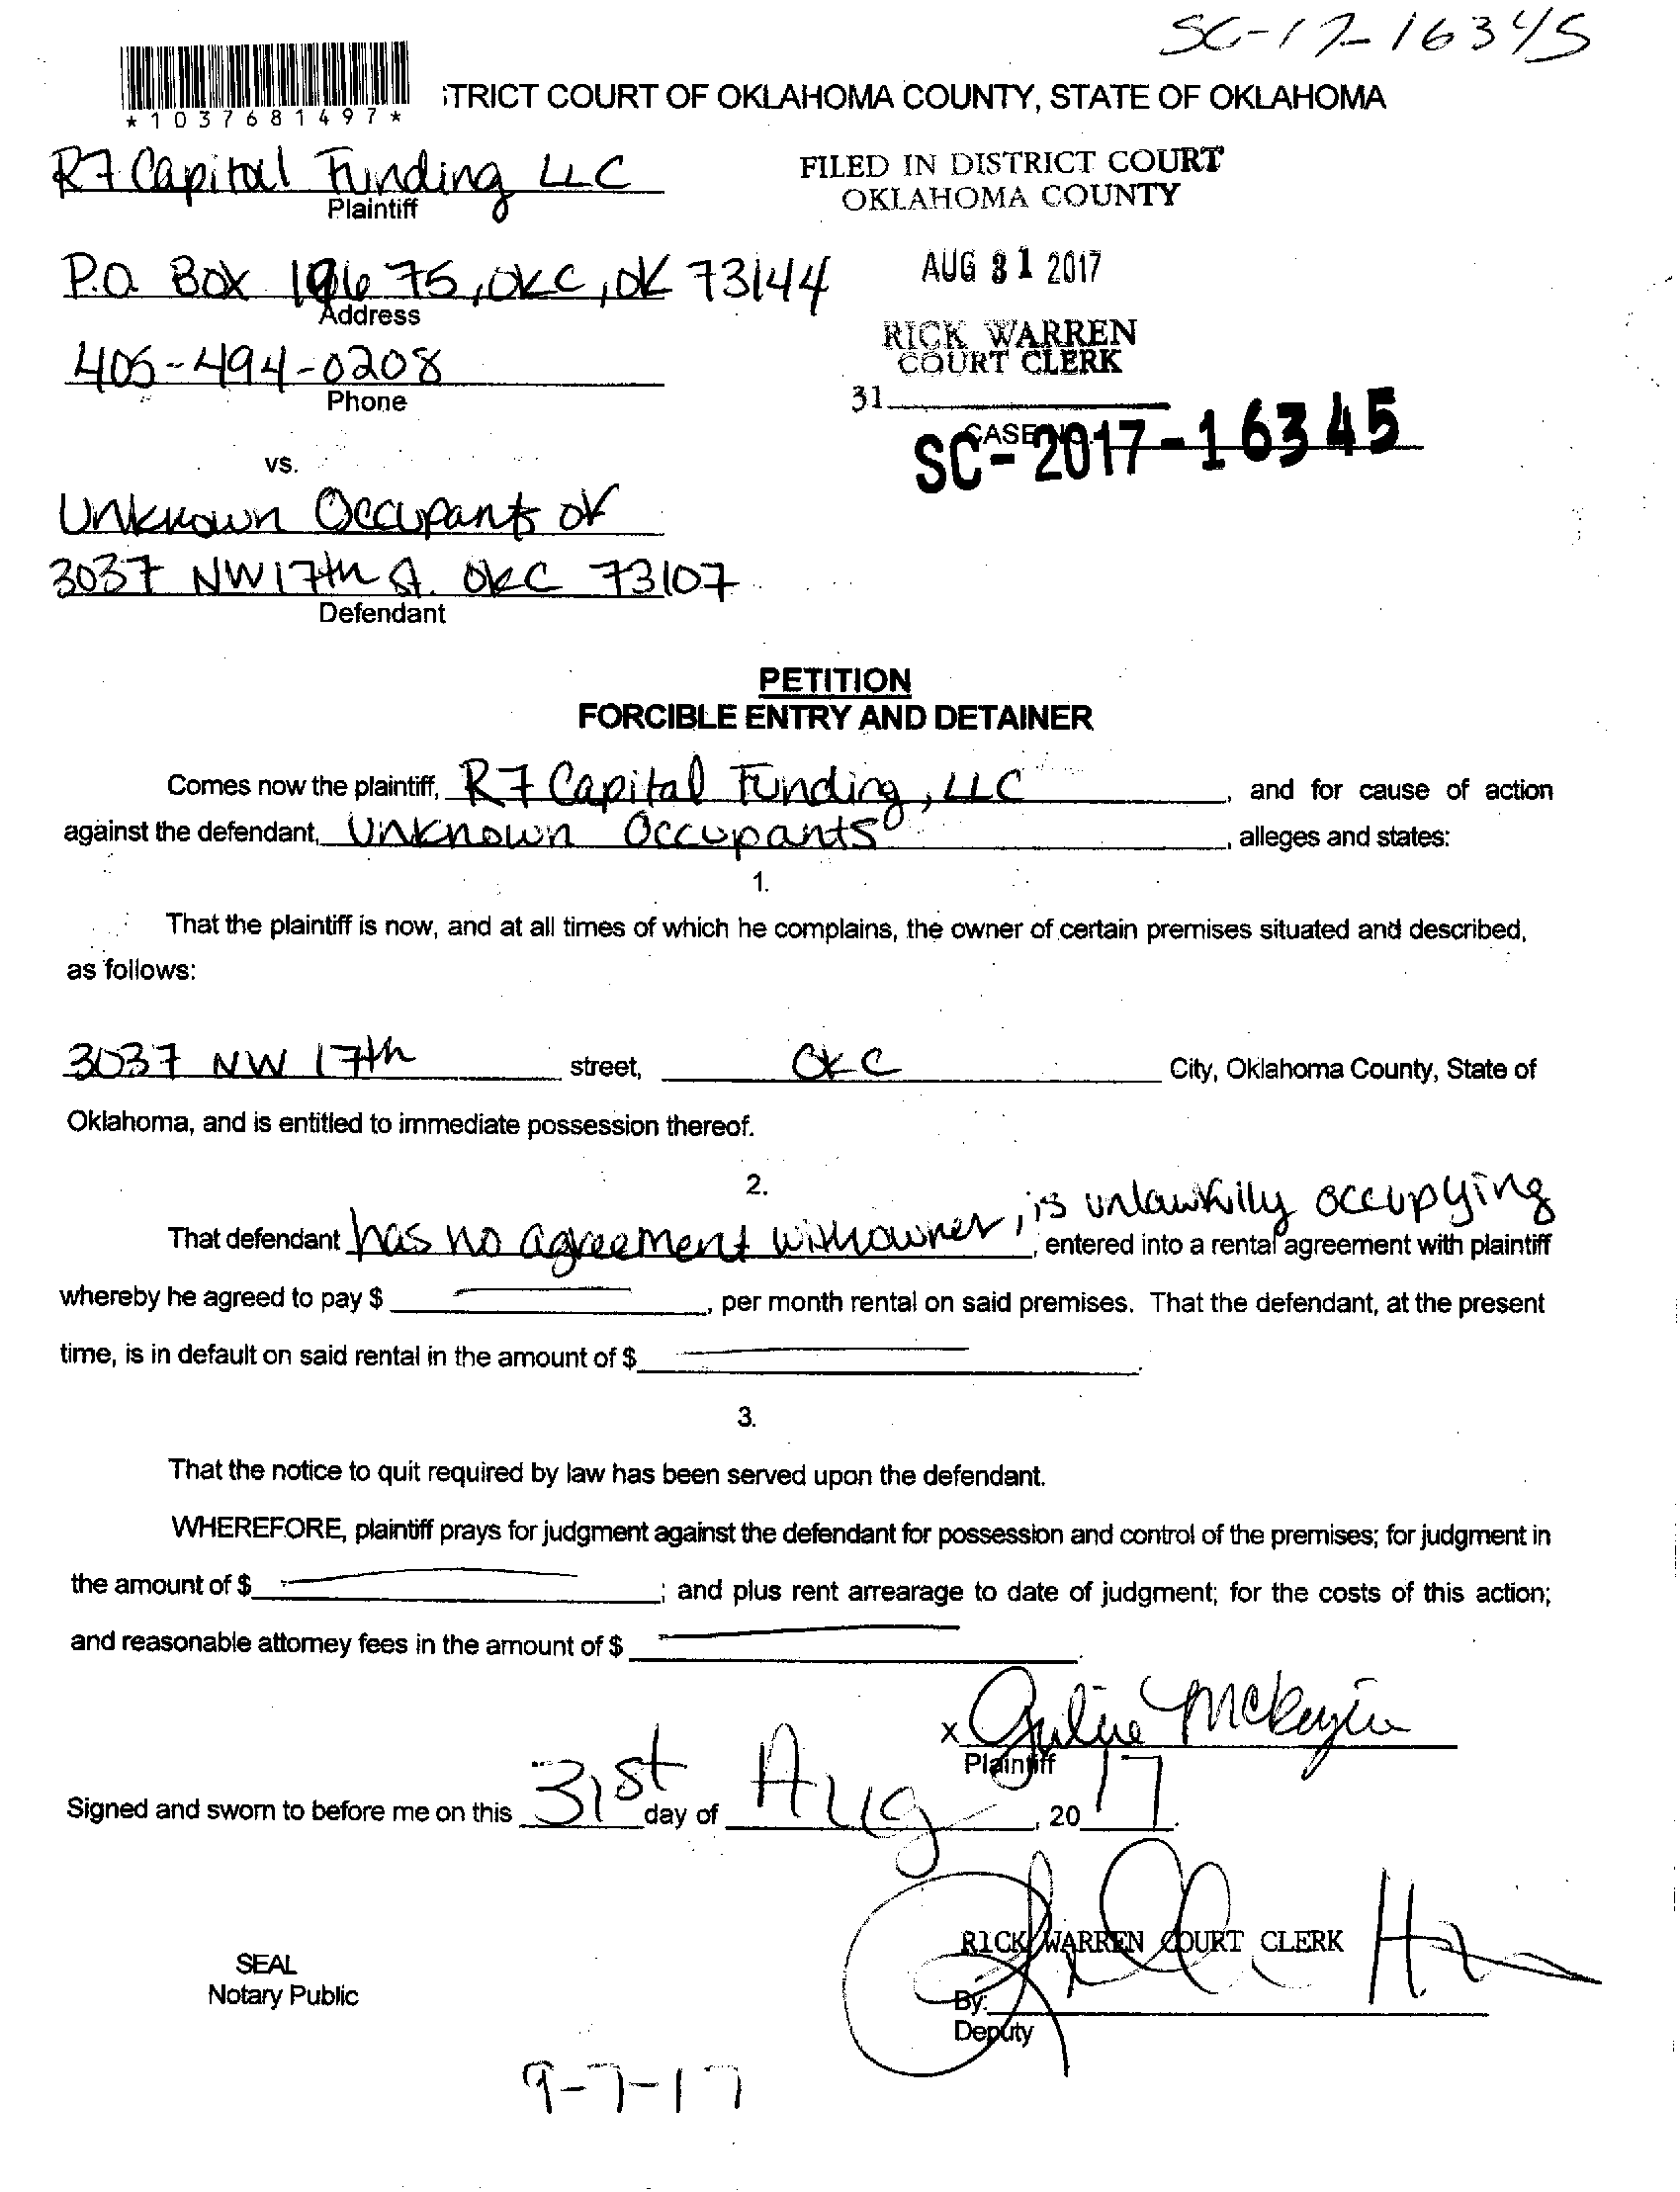 SC-17-16345
*1037681497*
TRICT COURT OF OKLAHOMA COUNTY, STATE OF OKLAHOMA
R7 Capital Funding LLC
Plaintiff
FILED IN DISTRICT COURT
OKLAHOMA COUNTY
P.O. Box 19675, OKC, OK 73144
Address
AUG 31 2017
405-494-0208
Phone
RICK WARREN
COURT CLERK
31
CASE NO.
SC-2017-16345
vs.
Unknown Occupants of
3037 NW 17th St. OKC 73107
Defendant
PETITION
FORCIBLE ENTRY AND DETAINER
Comes now the plaintiff, R7 Capital Funding, LLC, and for cause of action
against the defendant, Unknown Occupants, alleges and states:
1.
That the plaintiff is now, and at all times of which he complains, the owner of certain premises situated and described,
as follows:
3037 NW 17th street, OKC City, Oklahoma County, State of
Oklahoma, and is entitled to immediate possession thereof.
2.
That defendant has no agreement with owner, is unlawfully occupying, entered into a rental agreement with plaintiff
whereby he agreed to pay $ , per month rental on said premises. That the defendant, at the present
time, is in default on said rental in the amount of $ .
3.
That the notice to quit required by law has been served upon the defendant.
WHEREFORE, plaintiff prays for judgment against the defendant for possession and control of the premises; for judgment in
the amount of $ ; and plus rent arrearage to date of judgment; for the costs of this action;
and reasonable attorney fees in the amount of $ .
x Julie
Plaintiff
Signed and sworn to before me on this 31st day of Aug, 2017.
RICK WARREN COURT CLERK
SEAL
Notary Public
By:
Deputy
9-7-17